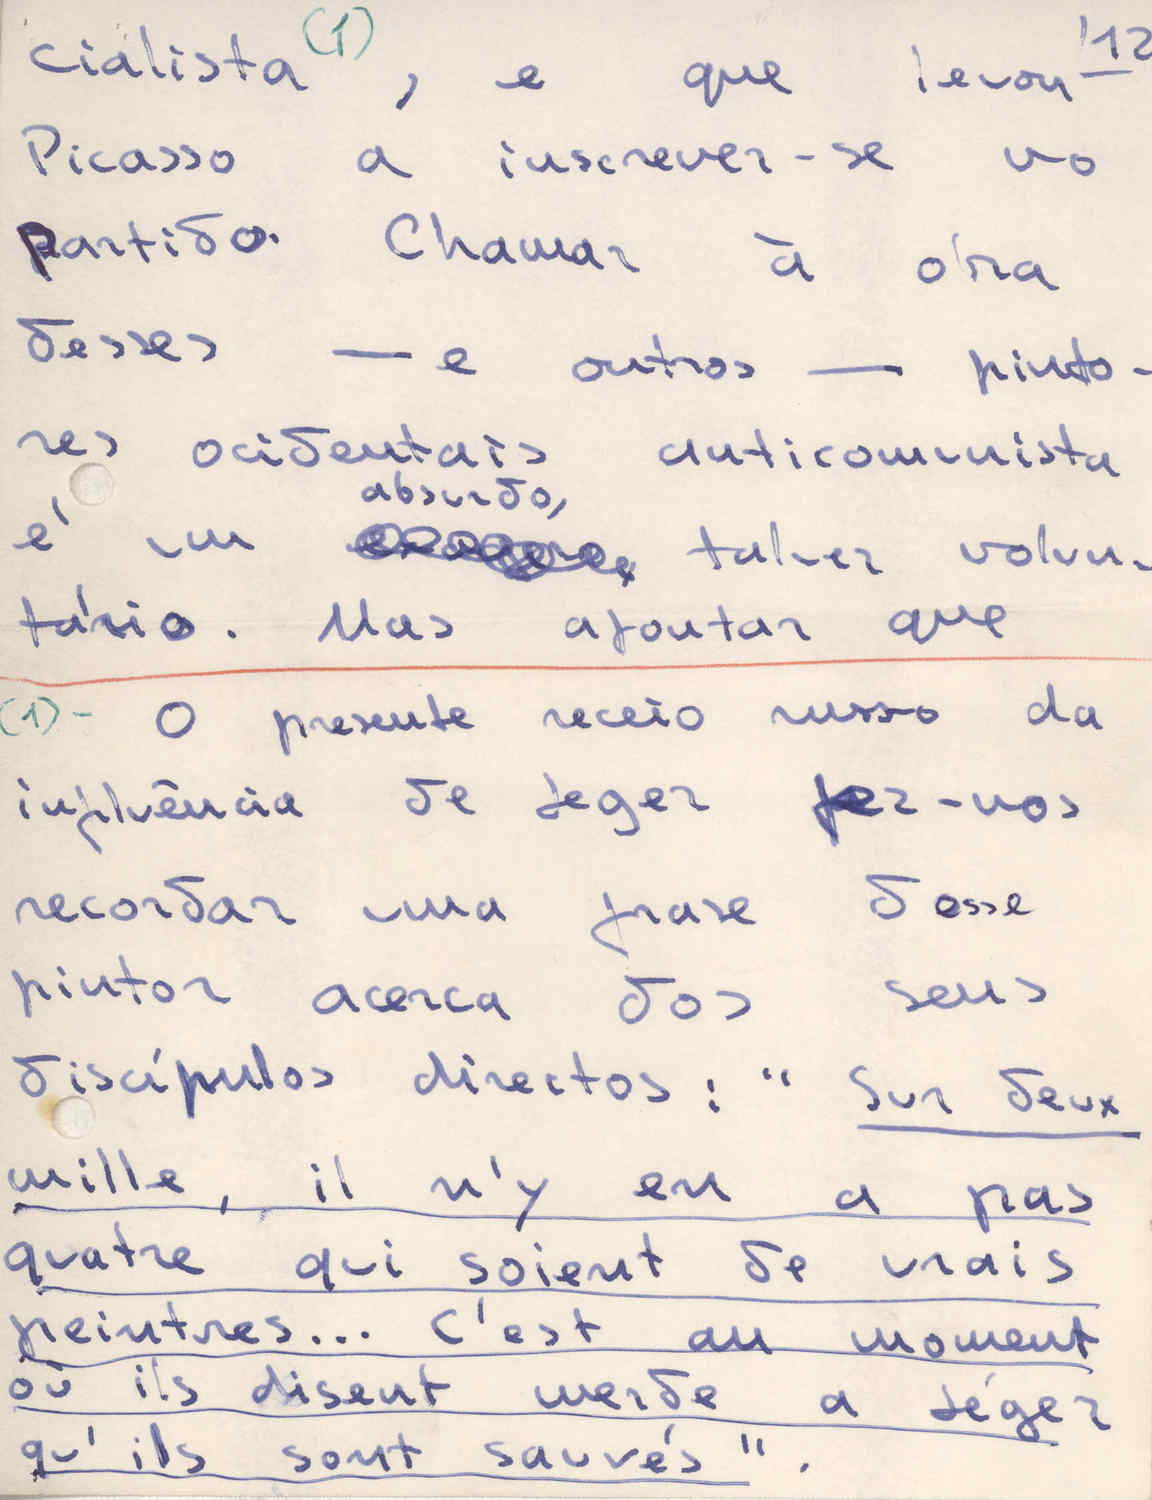 cialista (1), e que levou 12
Picasso a inscrever-se no
partido. Chamar à obra
desses — e outros — pinto-
res ocidentais anticomunista
absurdo,
é um talvez volun-
tário. Mas ajoutar que
(1)- O presente receio russo da
influência de Leger fez-nos
recordar uma frase desse
pintor acerca dos seus
discípulos directos: "Sur deux
mille, il n'y en a pas
quatre qui soient de vrais
peintres... C'est au moment
où ils disent merde a Léger
qu'ils sont sauvés".